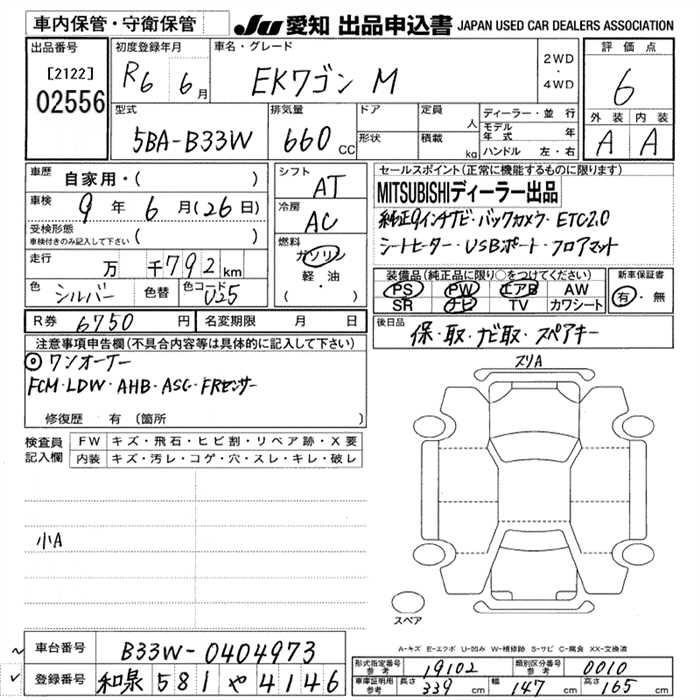 車内保管・守衛保管 JU 愛知 出品申込書 JAPAN USED CAR DEALERS ASSOCIATION
出品番号 初度登録年月 車名・グレード 評価点
[2122] R6 6月 EKワゴン M 2WD・4WD 6
02556
型式 排気量 ドア 定員 ディーラー・並行 外装 内装
5BA-B33W 660 CC 人 モデル年式 年 A A
形状 積載 kg ハンドル 左・右
車歴 自家用・( ) シフト AT セールスポイント(正常に機能するものに限ります)
車検 9年 6月(26日) 冷房 AC MITSUBISHIディーラー出品
受検形態 車検付きのみ記入して下さい ( ) 燃料 ガソリン 純正9インチナビ・バックカメラ・ETC2.0
走行 万 千792km 軽・油 シートヒーター・USBポート・フロアマット
色 シルバー 色替 色コード U25 ( )
装備品(純正品に限り○をつけてください) 新車保証書
PS PW エアB AW 有・無
SR ナビ TV カワシート
R券 6750円 名変期限 月 日 後日品 保・取・ナビ取・スペアキー
注意事項申告欄(不具合内容等は具体的に記入して下さい)
◎ワンオーナー
FCM・LDW・AHB・ASC・FRセンサー
修復歴 有 (箇所 )
スリA
検査員記入欄 FW キズ・飛石・ヒビ割・リペア跡・X要
内装 キズ・汚レ・コゲ・穴・スレ・キレ・破レ
小A
スペア
A-キズ E-エクボ U-凹み W-補修跡 S-サビ C-腐食 XX-交換済
車台番号 B33W-0404973
登録番号 和泉 581 や 4146
形式指定番号 参考 19102 類別区分番号 参考 0010
車庫証明用 参考 長さ 339cm 幅 147cm 高さ 165cm